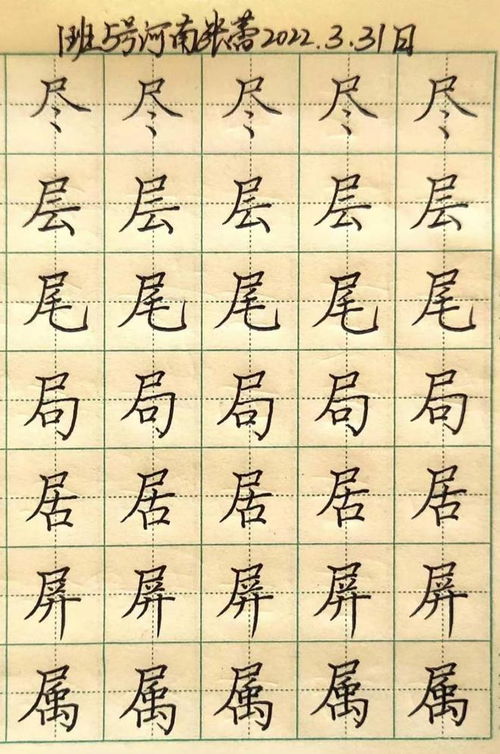 1班5号河南张蕾2022.3.31日
尽尽尽尽尽
层层层层层
尾尾尾尾尾
局局局局局
居居居居居
屏屏屏屏屏
属属属属属